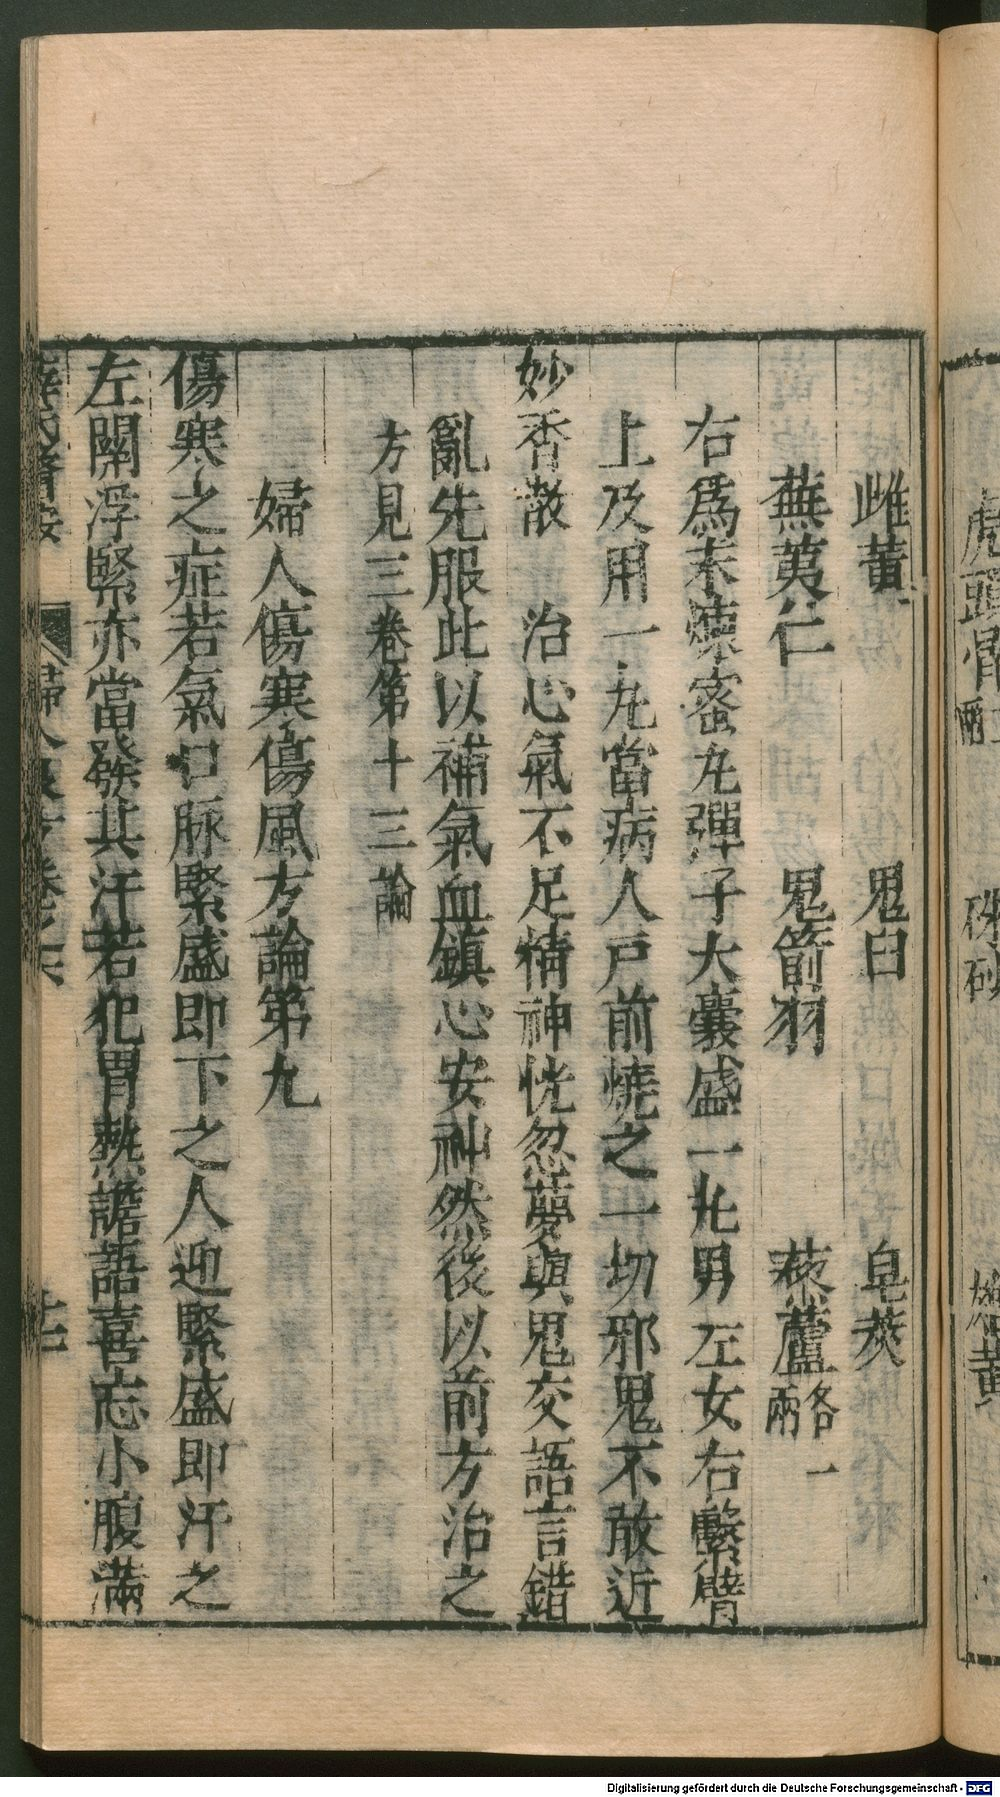 虎頭骨
硃砂
雄黄
雌黄 鬼臼 皂莢
蕪荑仁 鬼箭羽 藜蘆各一兩
右爲末煉蜜丸彈子大囊盛一丸男左女右繫臂
上及用一丸當病人戸前燒之一切邪鬼不敢近
妙香散 治心氣不足精神恍忽夢與鬼交語言錯
亂先服此以補氣血鎮心安神然後以前方治之
方見三卷第十三論
婦人傷寒傷風方論第九
傷寒之症若氣口脉緊盛即下之人迎緊盛即汗之
左關浮緊亦當發其汗若犯胃熱譫語喜忘小腹滿
薛氏醫按 婦人良方卷之六
Digitalisierung gefördert durch die Deutsche Forschungsgemeinschaft - DFG